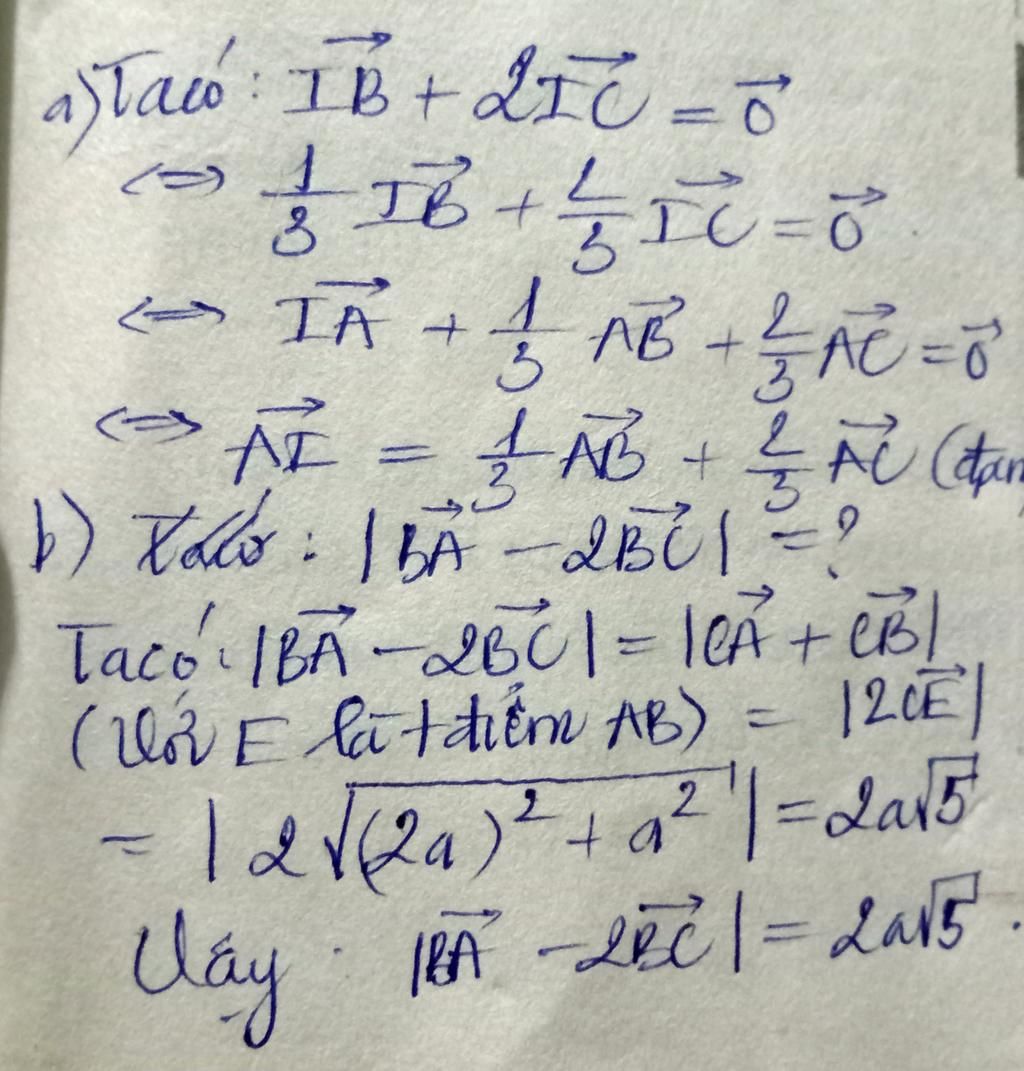 a) Ta có: \overrightarrow{IB} + 2\overrightarrow{IC} = \vec{0}
⇔ \frac{1}{3}\overrightarrow{IB} + \frac{2}{3}\overrightarrow{IC} = \vec{0}
⇔ \overrightarrow{IA} + \frac{1}{3}\overrightarrow{AB} + \frac{2}{3}\overrightarrow{AC} = \vec{0}
⇔ \overrightarrow{AI} = \frac{1}{3}\overrightarrow{AB} + \frac{2}{3}\overrightarrow{AC} (
b) : |\overrightarrow{BA} - 2\overrightarrow{BC}| = ?
Ta có: |\overrightarrow{BA} - 2\overrightarrow{BC}| = |\overrightarrow{CA} + \overrightarrow{CB}|
(Với E là t điểm AB) = |2\overrightarrow{CE}|
= |2\sqrt{(2a)^2 + a^2}| = 2a\sqrt{5}
Vậy: |\overrightarrow{BA} - 2\overrightarrow{BC}| = 2a\sqrt{5}.